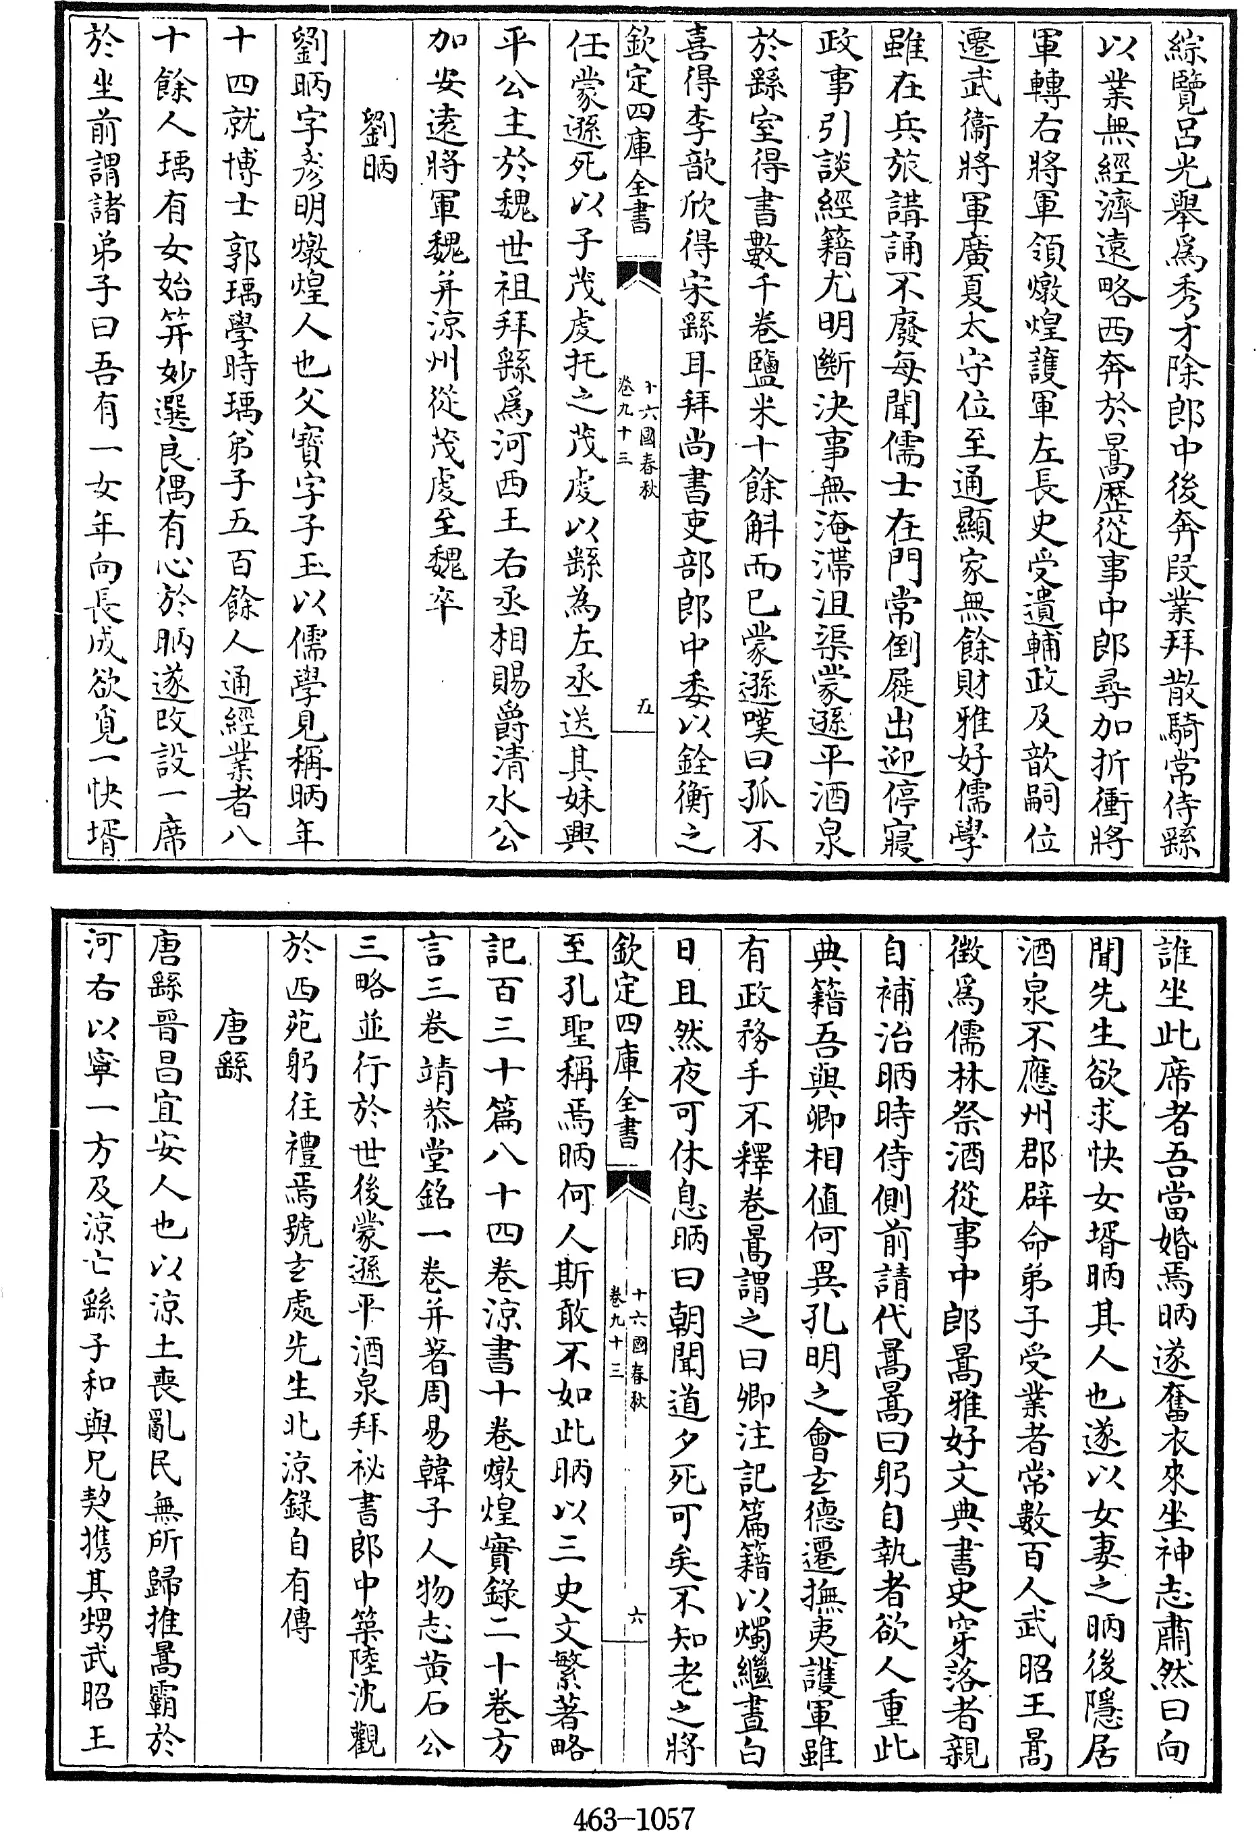 綜覽呂光舉爲秀才除郎中後奔段業拜散騎常侍繇
以業無經濟遠略西奔於暠歷從事中郎尋加折衝將
軍轉右將軍領燉煌護軍左長史受遺輔政及歆嗣位
遷武衞將軍廣夏太守位至通顯家無餘財雅好儒學
雖在兵旅講誦不廢每聞儒士在門常倒屣出迎停寢
政事引談經籍尤明斷決事無淹滯沮渠蒙遜平酒泉
於繇室得書數千卷鹽米十餘斛而已蒙遜嘆曰孤不
喜得李歆欣得宋繇耳拜尚書吏部郎中委以銓衡之
欽定四庫全書
十六國春秋
卷九十三
五
任蒙遜死以子茂虔托之茂虔以繇為左丞送其妹興
平公主於魏世祖拜繇爲河西王右丞相賜爵清水公
加安遠將軍魏并涼州從茂虔至魏卒
劉昞
劉昞字彦明燉煌人也父寳字子玉以儒學見稱昞年
十四就博士郭瑀學時瑀弟子五百餘人通經業者八
十餘人瑀有女始笄妙選良偶有心於昞遂改設一席
於坐前謂諸弟子曰吾有一女年向長成欲覓一快壻
誰坐此席者吾當婚焉昞遂奮衣來坐神志肅然曰向
聞先生欲求快女壻昞其人也遂以女妻之昞後隱居
酒泉不應州郡辟命弟子受業者常數百人武昭王暠
徵爲儒林祭酒從事中郎暠雅好文典書史穿落者親
自補治昞時侍側前請代暠暠曰躬自執者欲人重此
典籍吾與卿相值何異孔明之會玄德遷撫夷護軍雖
有政務手不釋卷暠謂之曰卿注記篇籍以燭繼晝白
日且然夜可休息昞曰朝聞道夕死可矣不知老之將
欽定四庫全書
十六國春秋
卷九十三
六
至孔聖稱焉昞何人斯敢不如此昞以三史文繁著略
記百三十篇八十四卷涼書十卷燉煌實錄二十卷方
言三卷靖恭堂銘一卷并著周易韓子人物志黃石公
三略並行於世後蒙遜平酒泉拜祕書郎中築陸沈觀
於西苑躬往禮焉號玄處先生北涼錄自有傳
唐繇
唐繇晉昌宜安人也以涼土喪亂民無所歸推暠霸於
河右以寧一方及涼亡繇子和與兄契攜其甥武昭王
463-1057